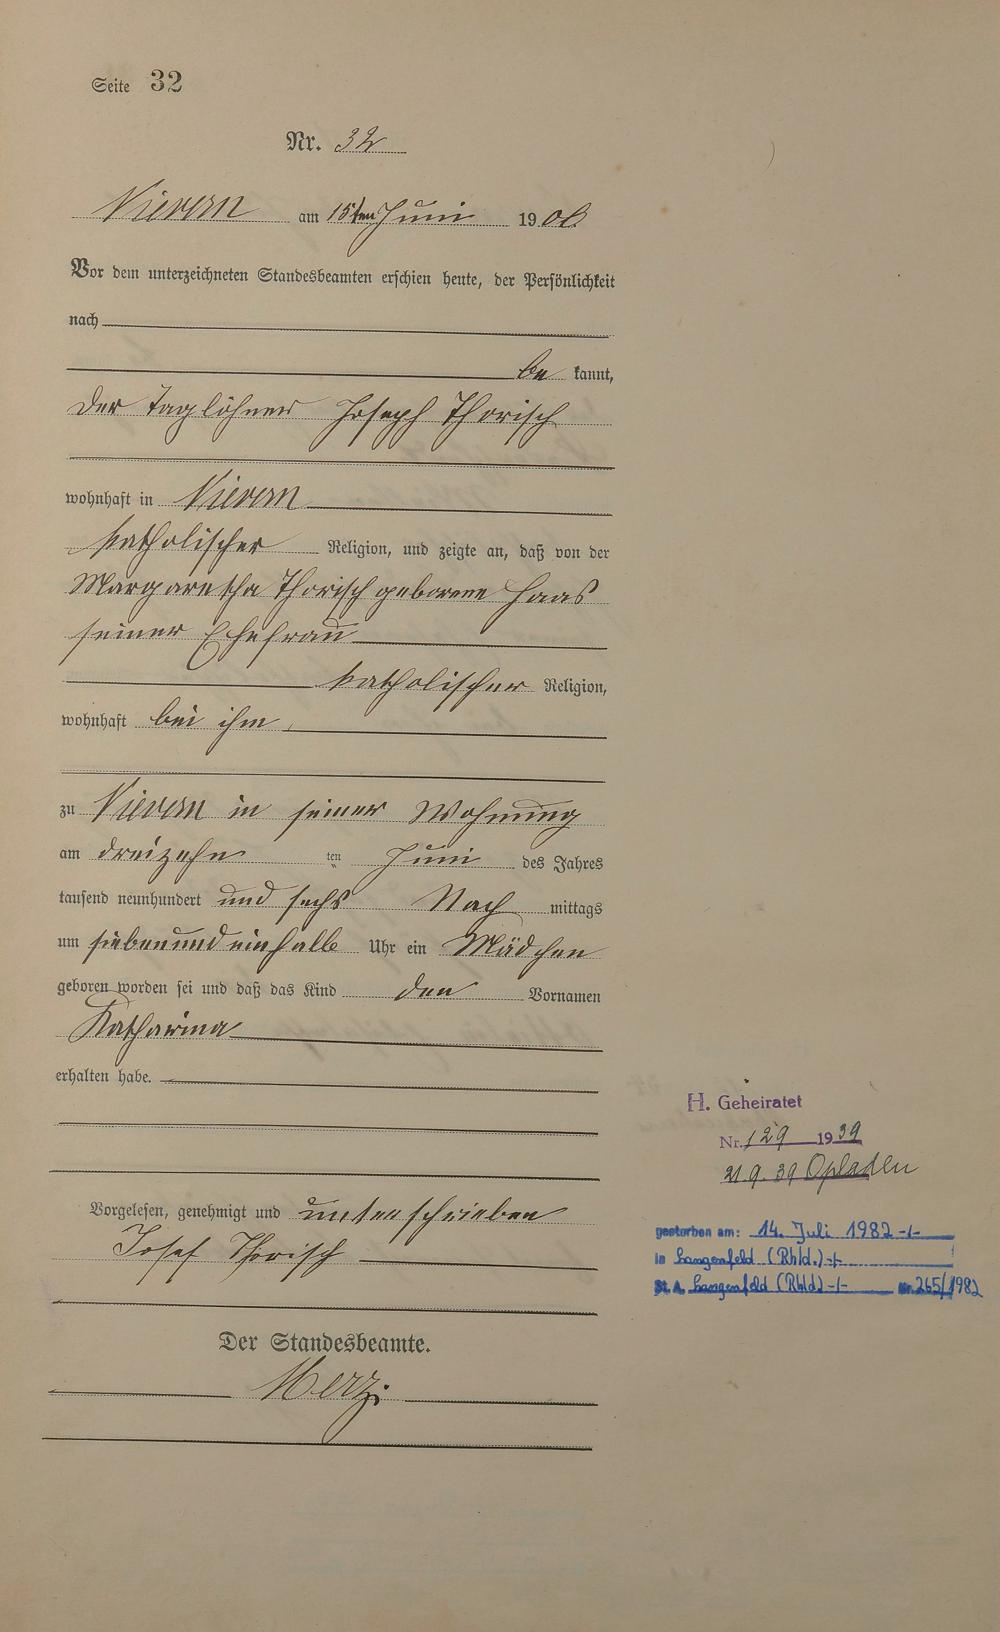 Seite 32
Nr. 32
Nievern am 15ten Juni 1906
Vor dem unterzeichneten Standesbeamten erschien heute, der Persönlichkeit
nach
be kannt,
der Taglöhner Joseph Thorisch
wohnhaft in Nievern
katholischer Religion, und zeigte an, daß von der
Margaretha Thorisch geborene Haas
seiner Ehefrau
katholischer Religion,
wohnhaft bei ihm,
zu Nievern in seiner Wohnung
am dreizehn ten Juni des Jahres
tausend neunhundert und sechs Nach mittags
um siebenundeinhalb Uhr ein Mädchen
geboren worden sei und daß das Kind den Vornamen
Katharina
erhalten habe.
Vorgelesen, genehmigt und unterschrieben
Josef Thorisch
Der Standesbeamte.
Merz
H. Geheiratet
Nr. 129 1939
21.9.39 Opladen
gestorben am: 14. Juli 1982 -/-
in Langenfeld (Rhld.) -/-
St.A. Langenfeld (Rhld) -/- Nr. 265/1982